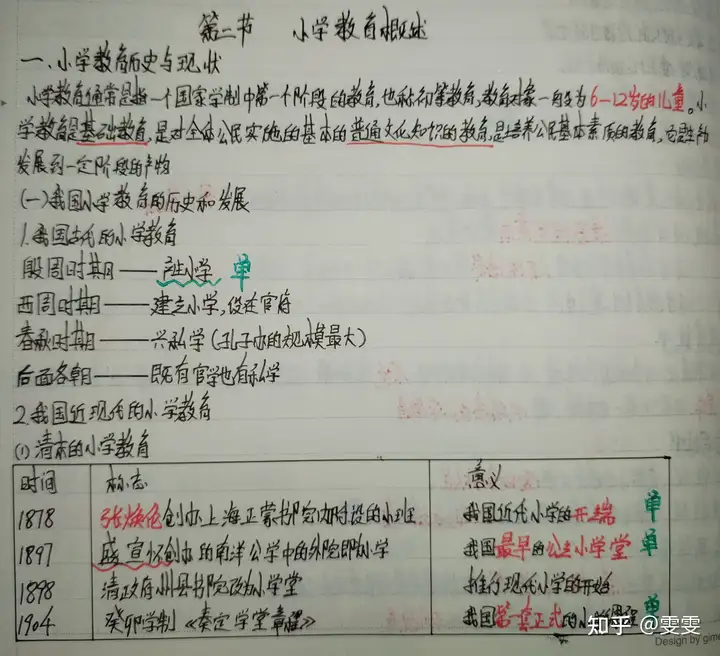 第二节 小学教育概述
一、小学教育历史与现状
小学教育通常是指一个国家学制中第一个阶段的教育,也称初等教育,教育对象一般为6-12岁的儿童。小
学教育是基础教育,是对全体公民实施的基本的普通文化知识的教育,是培养公民基本素质的教育,它是生产
发展到一定阶段的产物
(一)我国小学教育的历史和发展
1.我国古代的小学教育
殷周时期——产生小学 单
西周时期——建立小学,设在官府
春秋时期——兴私学(孔子办的规模最大)
后面各朝——既有官学也有私学
2.我国近现代的小学教育
(1)清末的小学教育
时间 标志 意义
1878 张焕伦创办上海正蒙书院内附设的小班 我国近代小学的开端 单
1897 盛宣怀创办的南洋公学中的外院即小学 我国最早的公立小学堂 单
1898 清政府州县书院改为小学堂 推行现代小学的开始
1904 癸卯学制《奏定学堂章程》 我国第一套正式的小学 单
知乎 @雯雯
Design by